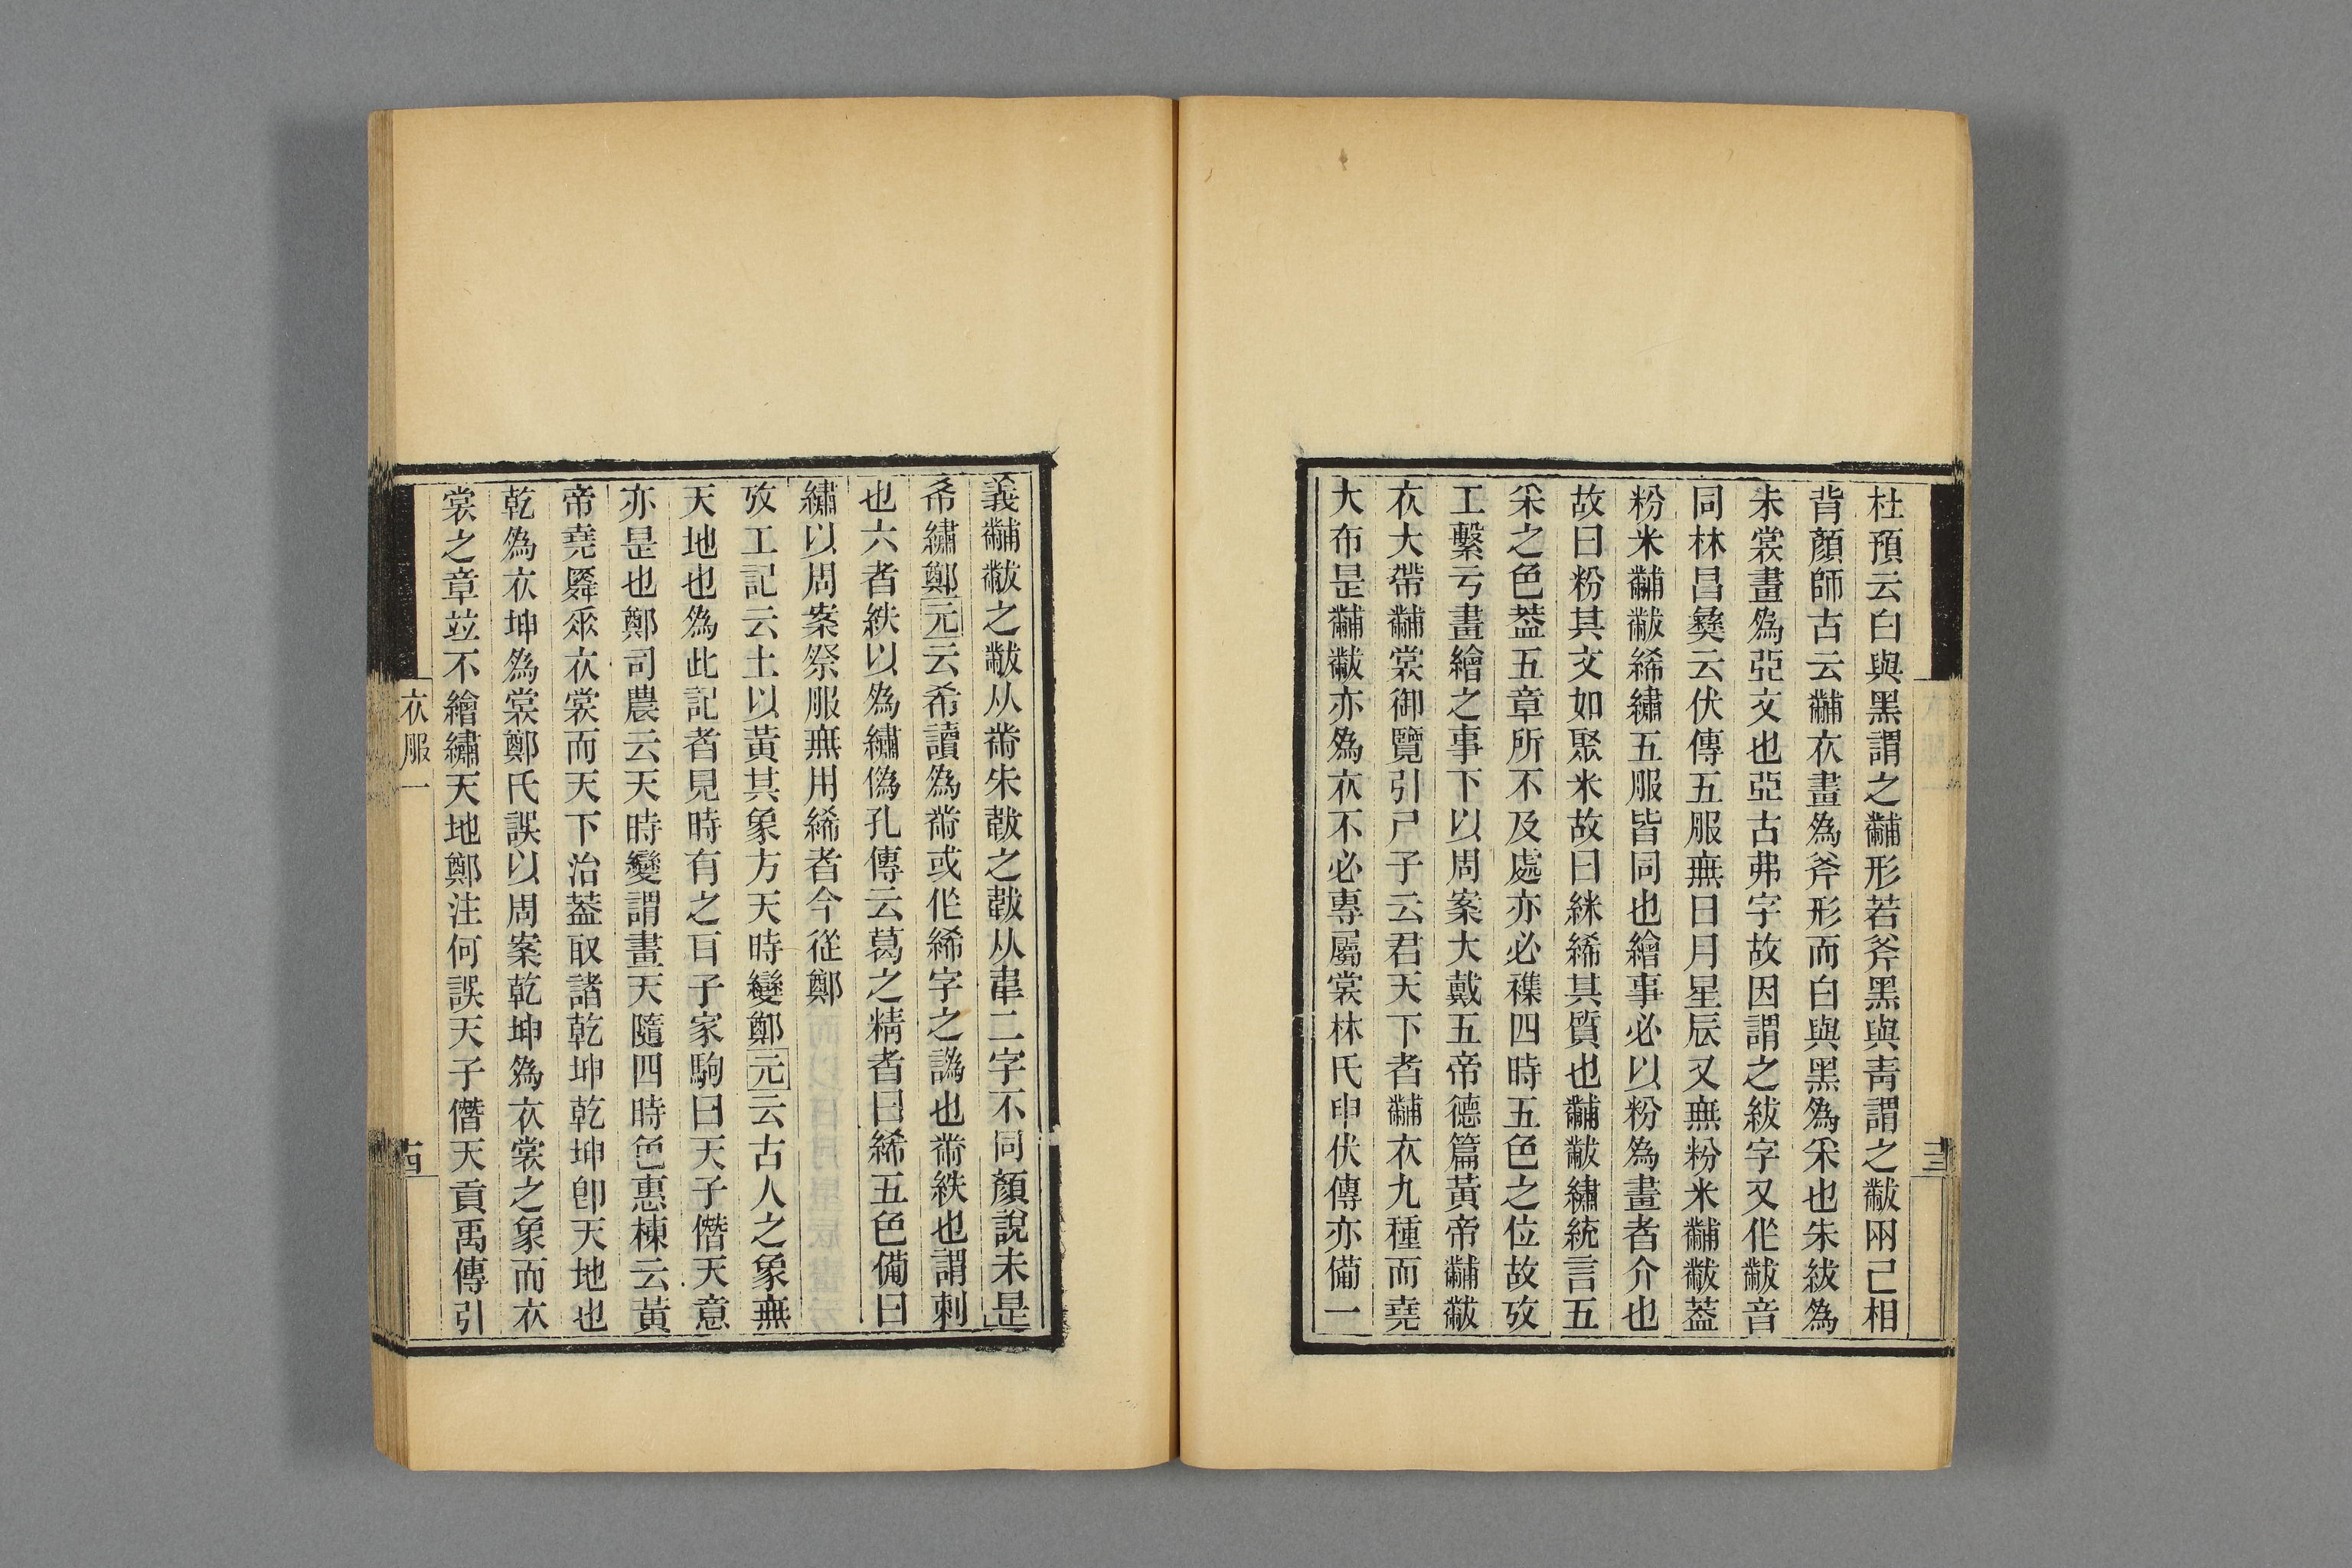 杜預云白與黑謂之黼形若斧黑與靑謂之黻兩己相
背顏師古云黼衣畫爲斧形而白與黑爲采也朱紱爲
朱裳畫爲亞文也亞古弗字故因謂之紱字又作黻音
同林昌彝云伏傳五服無日月星辰又無粉米黼黻葢
粉米黼黻絺繡五服皆同也繪事必以粉爲畫者介也
故曰粉其文如聚米故曰絲絺其質也黼黻繡統言五
采之色葢五章所不及處亦必襍四時五色之位故攷
工繫亏畫繪之事下以周案大戴五帝德篇黃帝黼黻
衣大帶黼裳御覽引尸子云君天下者黼衣九種而堯
大布是黼黻亦爲衣不必專屬裳林氏申伏傳亦備一
義黼黻之黻从黹朱韍之韍从韋二字不同顏說未是
希繡鄭元云希讀爲黹或作絺字之譌也黹紩也謂刺
也六者紩以爲繡僞孔傳云葛之精者曰絺五色備曰
繡以周案祭服無用絺者今從鄭
攷工記云土以黃其象方天時變鄭元云古人之象無
天地也爲此記者見時有之耳子家駒曰天子僭天意
亦是也鄭司農云天時變謂畫天隨四時色惠棟云黃
帝堯舜垂衣裳而天下治葢取諸乾坤乾坤卽天地也
乾爲衣坤爲裳鄭氏誤以周案乾坤爲衣裳之象而衣
裳之章竝不繪繡天地鄭注何誤天子僭天貢禹傳引
衣服一
十四
十三